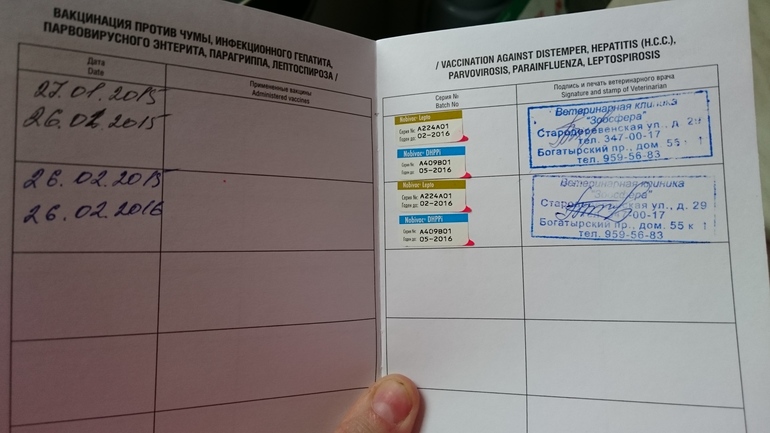 ВАКЦИНАЦИЯ ПРОТИВ ЧУМЫ, ИНФЕКЦИОННОГО ГЕПАТИТА,
ПАРВОВИРУСНОГО ЭНТЕРИТА, ПАРАГРИППА, ЛЕПТОСПИРОЗА /
Дата
Date
Примененные вакцины
Administered vaccines
27.01.2015
26.02.2015
26.02.2015
26.02.2016
/ VACCINATION AGAINST DISTEMPER, HEPATITIS (H.C.C.),
PARVOVIROSIS, PARAINFLUENZA, LEPTOSPIROSIS
Серия №
Batch No
Подпись и печать ветеринарного врача
Signature and stamp of Veterinarian
Nobivac Lepto
Серия № A224A01
Годен до: 02-2016
Nobivac DHPPi
Серия № A409B01
Годен до: 05-2016
Ветеринарная клиника
"Зоосфера"
Стародеревенская ул., д. 29
тел. 347-00-17
Богатырский пр., дом. 55 к 1
тел. 959-56-83
Nobivac Lepto
Серия № A224A01
Годен до: 02-2016
Nobivac DHPPi
Серия № A409B01
Годен до: 05-2016
Ветеринарная клиника
"Зоосфера"
Стародеревенская ул., д. 29
347-00-17
Богатырский пр., дом. 55 к 1
тел. 959-56-83